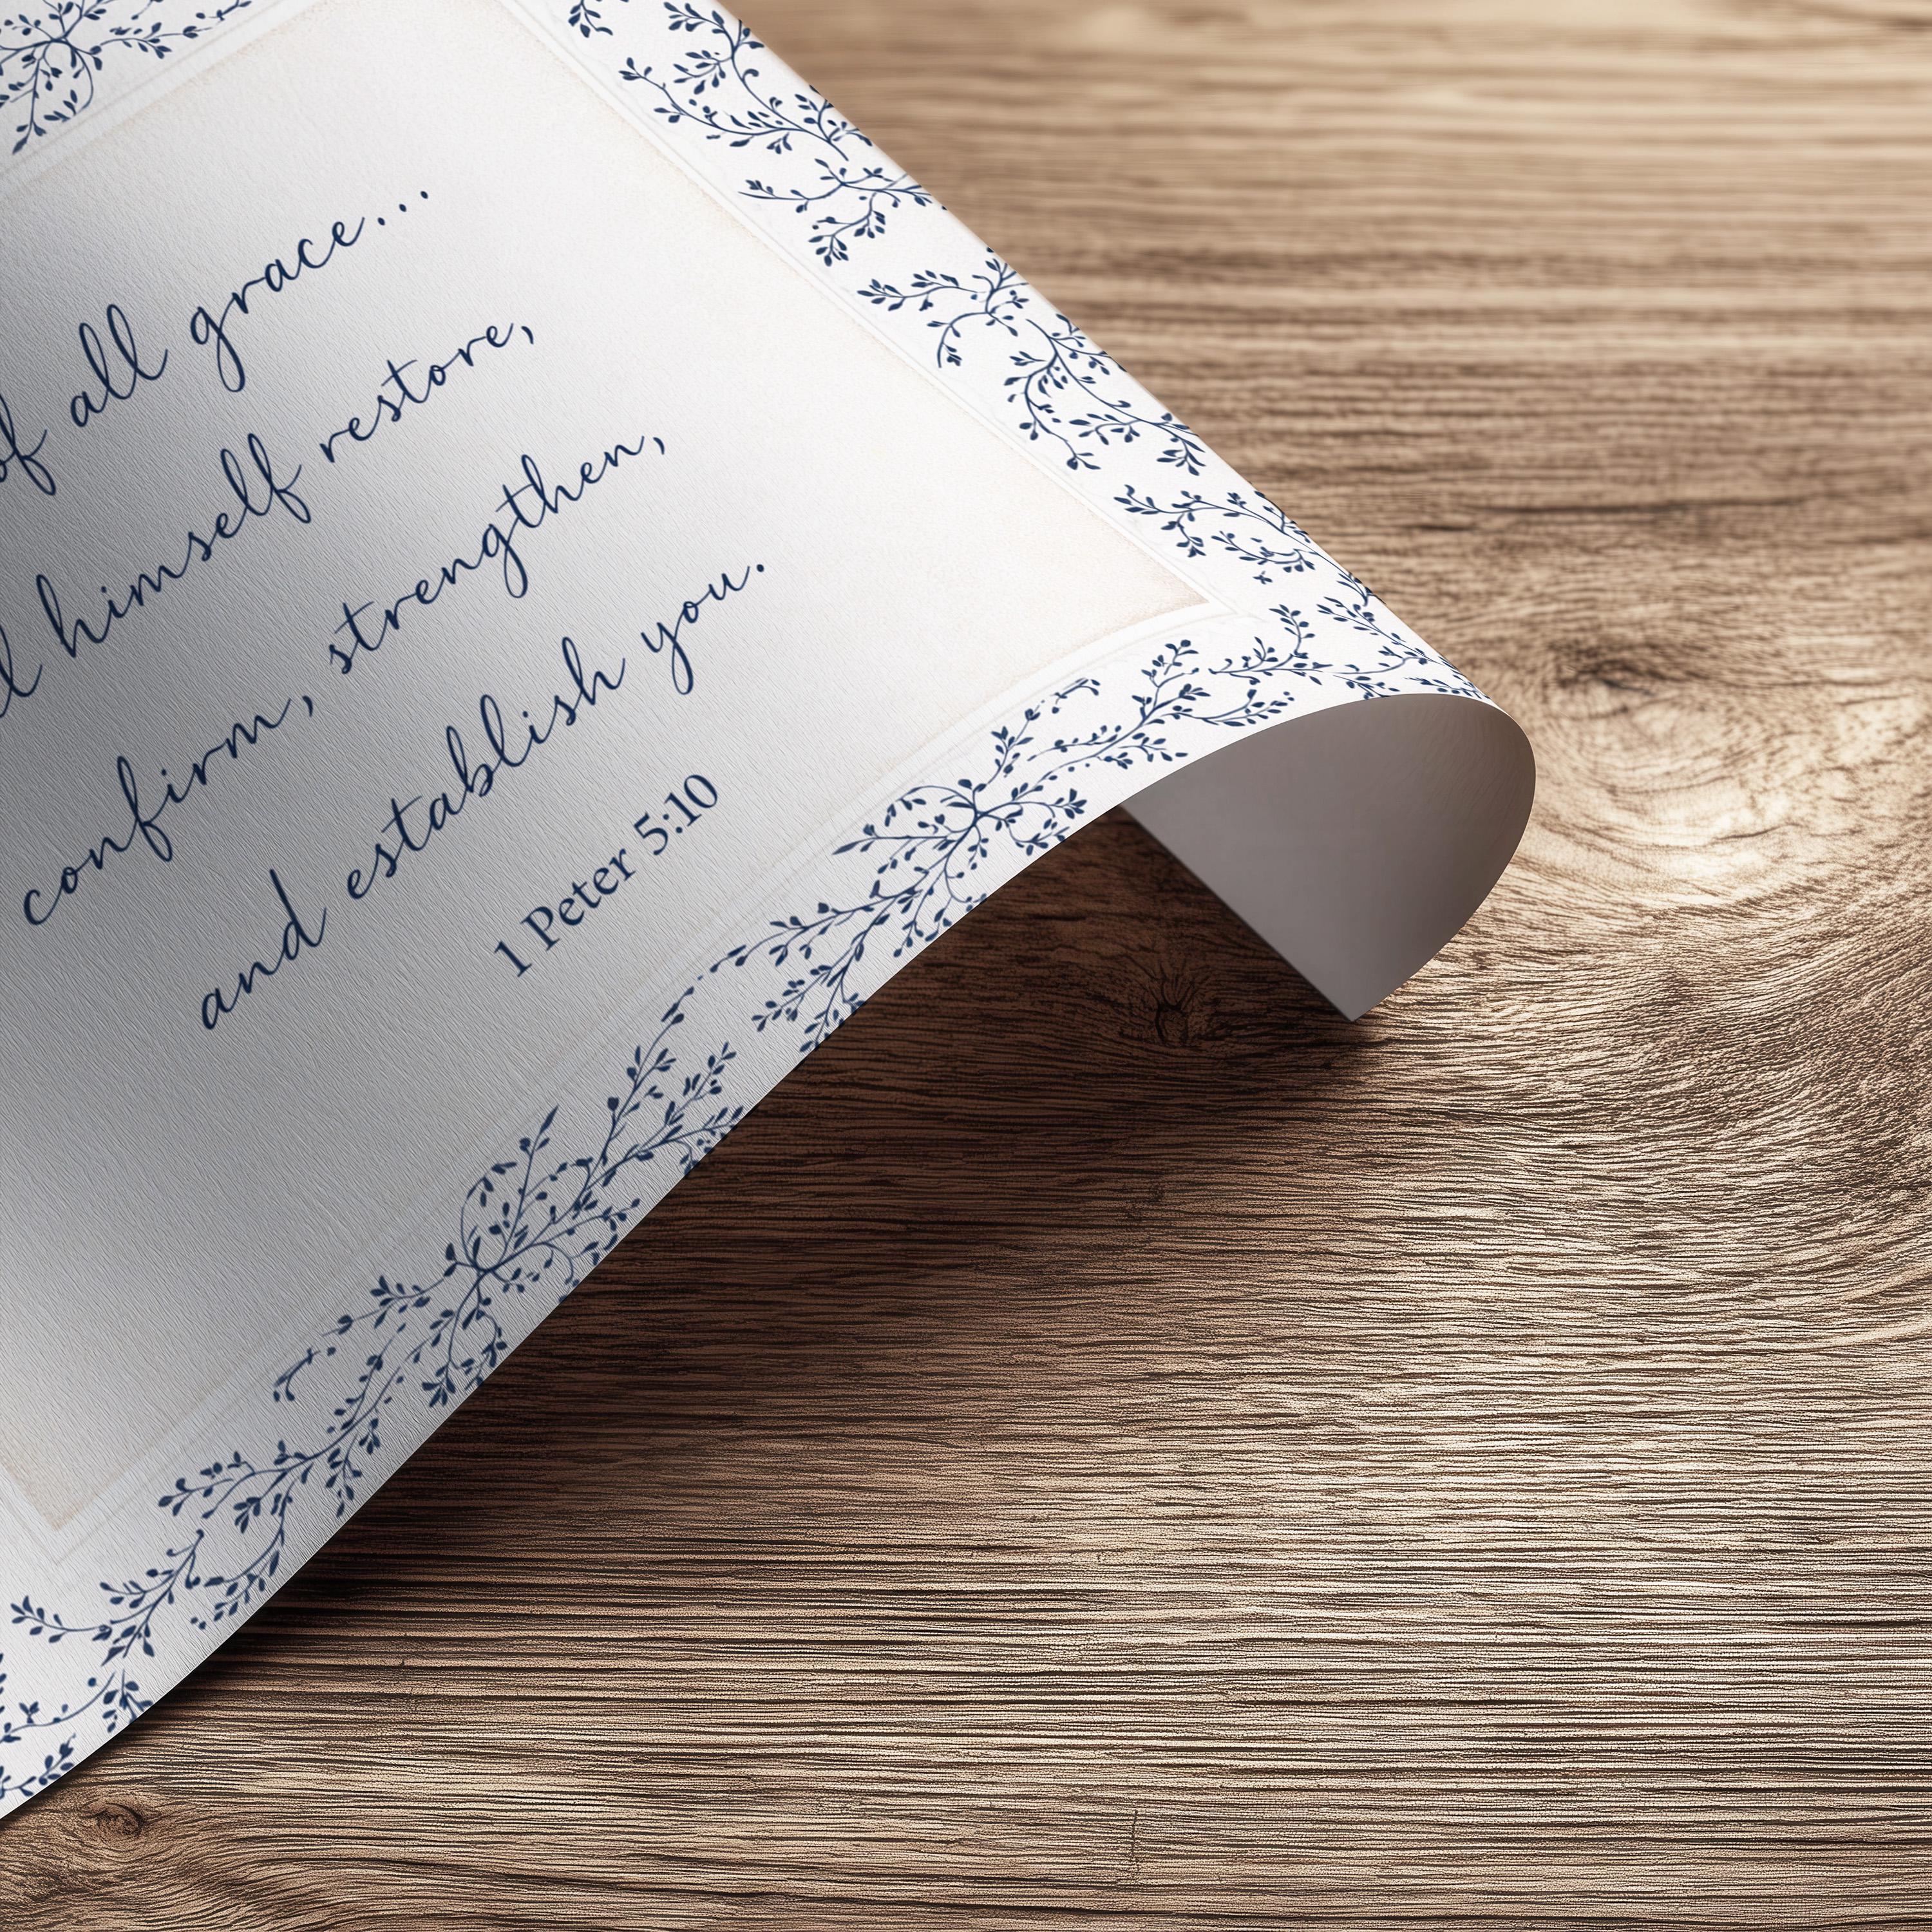 of all grace...
himself restore,
confirm, strengthen,
and establish you.
1 Peter 5:10